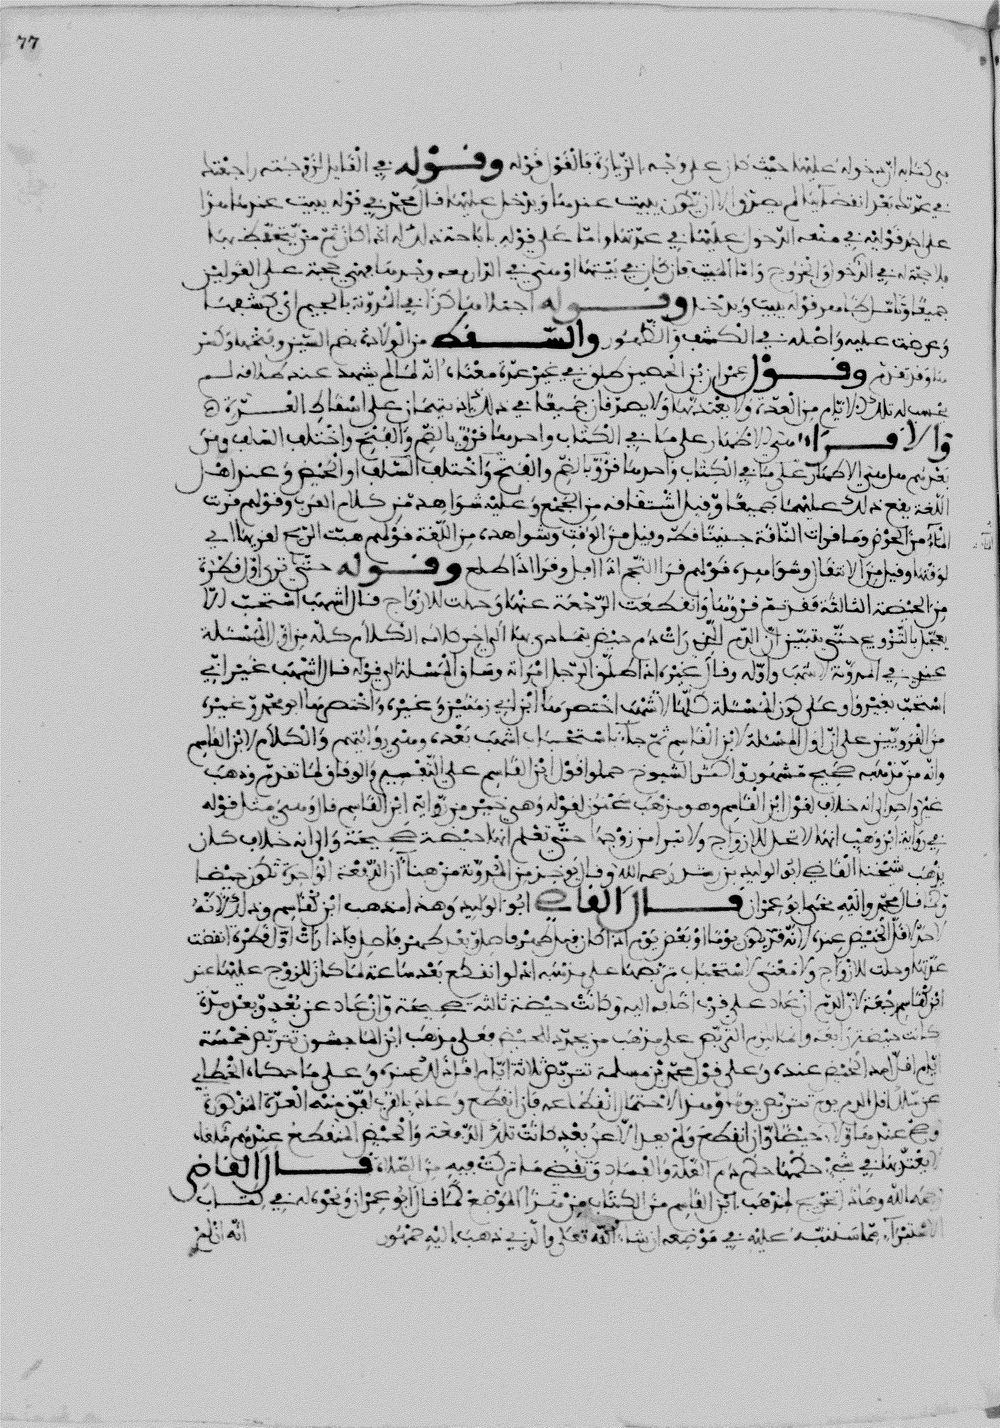 77
في كتابه ان دخوله عليها حنث كان على وجه الزيارة فالقول قوله وقوله في القايل لزوجته راجعتك
في عدتك بعد انقضائها لم يصدق الا ان يكون يبيت عندها ويدخل عليها قال محمد في قوله يبيت عندها هذا
على احد قوليه في منعه الدخول عليها في عدتها واما على قوله باباحة ذلك له اذا كان ثم من يتحفظ بها
فلا حجة له في الدخول والخروج واما المبيت فان كان في بيتها او معها في الدار
جميعا قوله يبيت ويدخل وقوله اجفلا في المدونة بالجيم اي كشفها
وعرضت عليه واصله في الكشف والظهور والسقط من الولادة بضم السين وفتحها وكسرها
وقد تقدم وقول عمران بن الحصين طلق في غير عدة معناه انه لما لم يشهد عند طلاقه لم
تحسب له تلك الايام من العدة ولا يعتد بها ولا يصدقان جميعا في ذلك اذ يتهمان على اسقاط العدة
والاقراء هي الاطهار على ما في الكتاب واحدها قرء بالضم والفتح واختلف السلف ومن
بعدهم هل هي الاطهار على ما في الكتاب واحدها قرء بالضم والفتح واختلف السلف او الحيض وعند اهل
اللغة يقع ذلك عليهما جميعا وقيل اشتقاقه من الجمع وعليه شواهد من كلام العرب وقولهم قرت
الماء في الحوض وما قرات الناقة جنينا قط وقيل من الوقت وشواهده من اللغة قولهم هبت الريح لقريها اي
لوقتها وقيل من الانتقال وشواهده قولهم قرا النجم اذا افل وقرا اذا طلع وقوله حتى ترى اول قطرة
من الحيضة الثالثة فقد تم قروها وانقطعت الرجعة عنها وحلت للازواج قال اشهب استحب الا
يعجل بالتزويج حتى يتبين ان الدم الذي رات دم حيض يتمادى بها الى اخر كلامه الكلام كله من اول المسئلة
عندي في المدونة لاشهب واوله وقال غيره اذا طلق الرجل امراته وساق المسئلة الى قوله قال اشهب غير اني
استحب بغير واو على كون المسئلة كلها لاشهب اختصرها ابن ابي زمنين وغيره واختصرها ابو محمد وغيره
من القرويين على ان اول المسئلة لابن القاسم ثم جاء باستحباب اشهب بعده وهي روايتهم والكلام لابن القاسم
وانه من مذهبه صحيح مشهور واكثر الشيوخ حملوا قول ابن القاسم على التفسير والوفاق لما تقدم وذهب
غير واحد الى انه خلاف لقول ابن القاسم وهو مذهب سحنون لقوله وهي خير من رواية ابن القاسم قال وهي مثل قوله
في رواية ابن وهب انها لا تحل للازواج ولا تبرا من زوجها حتى تعلم انها حيضة صحيحة والى انه خلاف كان
يذهب شيخنا القاضي ابو الوليد بن رشد رحمه الله وقال يوخذ من المدونة من هنا ان الدفعة الواحدة تكون حيضا
وكذا قال محمد واليه نحى ابو عمران قال القاضي ابو الوليد وهذا مذهب ابن القاسم وذلك لانه
لا حد لاقل الحيض عنده لانه قد يكون يوما او بعض يوم اذا كان قبله طهر فاصل وبعده طهر فاصل فاذا رات اول قطرة انقضت
عدتها وحلت للازواج ولا معنى لاستحباب تربصها على مذهبه اذ لو انقطع بعد ساعة لما كان للزوج عليها عند
ابن القاسم رجعة لان الدم ان عاد على قرب اضافه اليه وكانت حيضة ثالثة صحيحة وان عاد عن بعد وبعد مدة
كانت حيضة رابعة وانما يلزم التربص على مذهب من يحدد الحيض فعلى مذهب ابن الماجشون تتربص خمسة
ايام اقل امد الحيض عنده وعلى قول محمد بن مسلمة تتربص ثلاثة ايام اقل ذلك عنده وعلى ما حكاه الخطابي
عن مالك اقل الدم يوم تتربص يوما وهذا لاحتمال انقطاعه فان انقطع وعاد بالقرب لفق منه العدة المذكورة
وصح عندها والا حيضا وان انقطع ولم يعد الا عن بعد كانت تلك الدفعة والحيض المنقطع عندهم ملغاة
لا يعتد بها في شيء حكمها حكم دم العلة والفساد وتقضي ما تركت فيه من الصلاة قال القاضي
رحمه الله وهذا تخريج لمذهب ابن القاسم من الكتاب من هذا الموضع كما قال ابو عمران ونحوه له في كتاب
الاستبراء مما سننبه عليه في موضعه ان شاء الله تعالى والذي ذهب اليه حمهور
انه ان لم